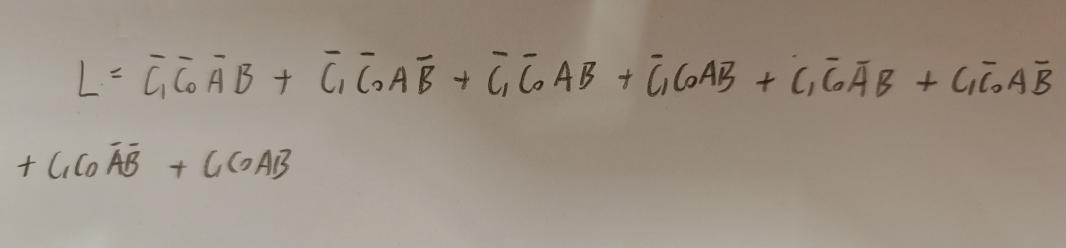 L = C̄₁C̄₀ĀB + C̄₁C̄₀AB̄ + C̄₁C̄₀AB + C̄₁C₀AB + C₁C̄₀ĀB + C₁C̄₀AB̄
+ C₁C₀ĀB̄ + C₁C₀AB